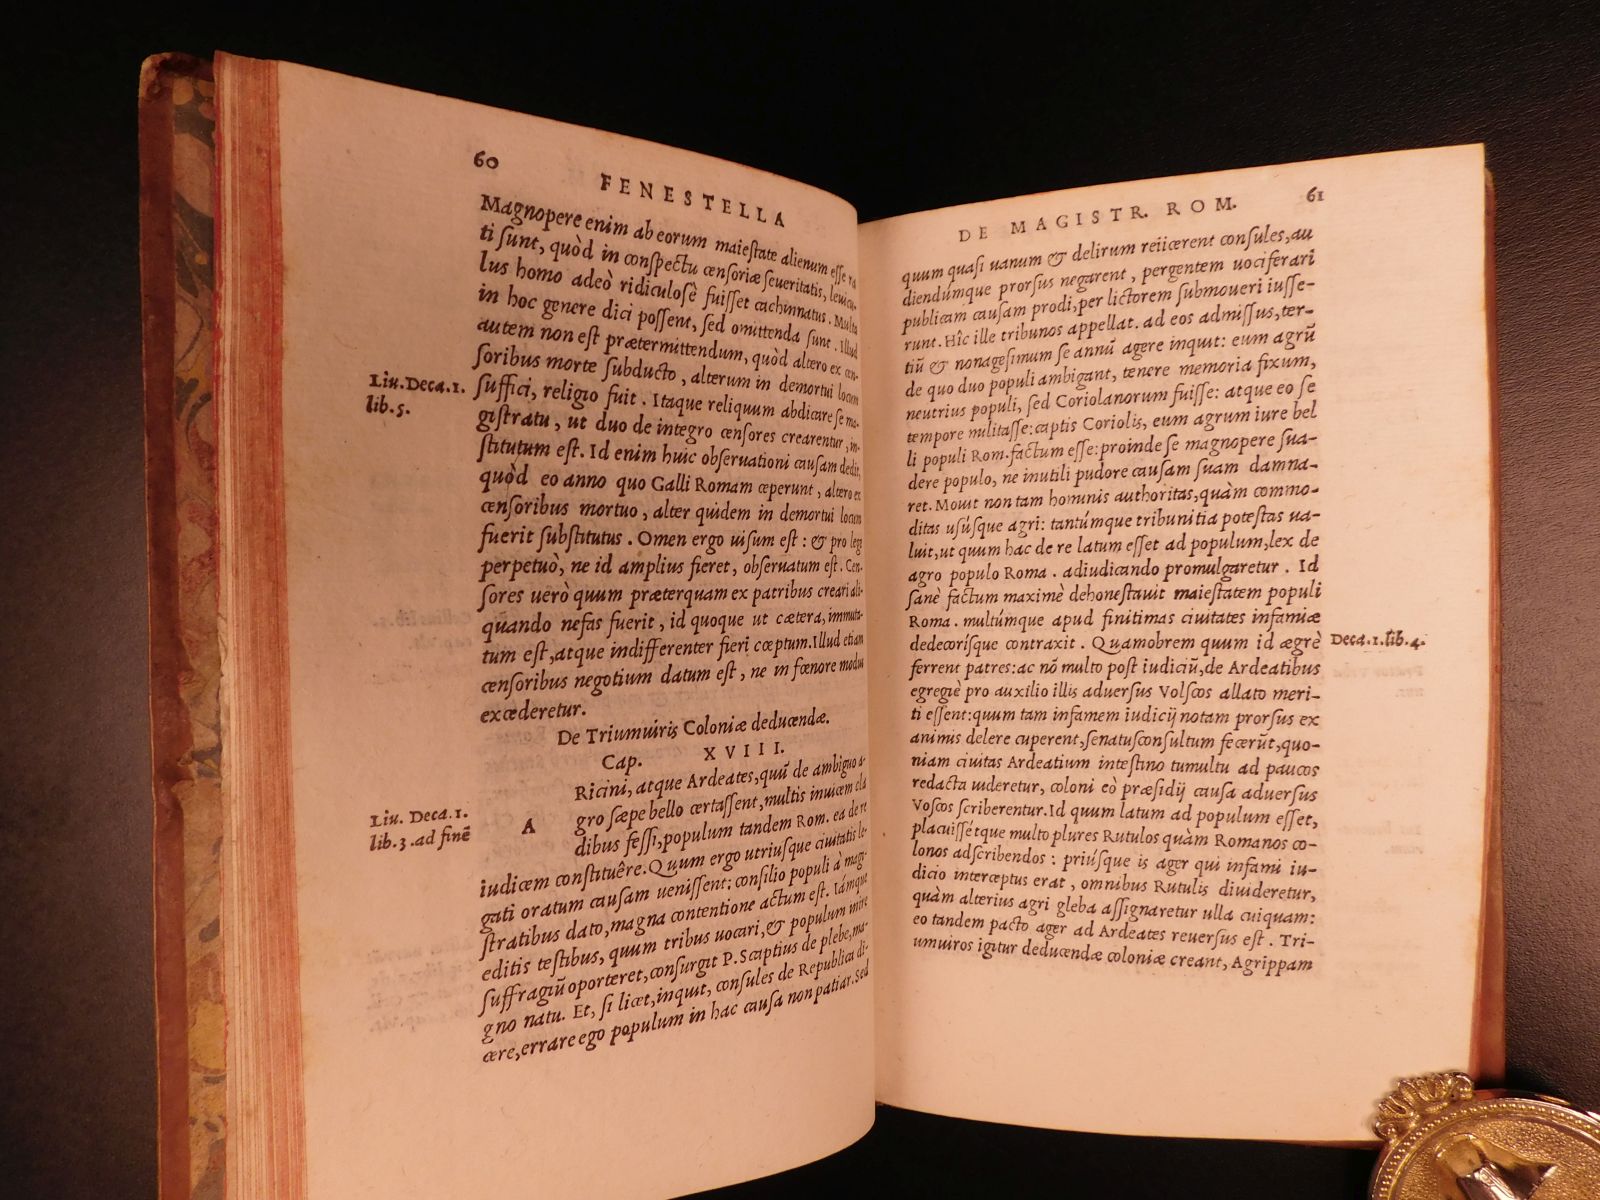 60
FENESTELLA
Magnopere enim ab eorum maiestate alienum esse ra
ti sunt, quòd in conspectu censoriæ seueritatis, leuicu-
lus homo adeò ridiculosè fuisset cachinnatus. Multa
in hoc genere dici possent, sed omittenda sunt. Illud
autem non est prætermittendum, quòd altero ex cen-
soribus morte subducto, alterum in demortui locum
Liu. Deca. 1.
lib. 5.
suffici, religio fuit. Itaque reliquum abdicare se ma-
gistratu, ut duo de integro censores crearentur, in-
stitutum est. Id enim huic obseruationi causam dedit,
quòd eo anno quo Galli Romam ceperunt, altero ex
censoribus mortuo, alter quidem in demortui locum
fuerit substitutus. Omen ergo uisum est: & pro lege
perpetuò, ne id amplius fieret, obseruatum est. Cen-
sores uerò quum præterquam ex patribus creari ali-
quando nefas fuerit, id quoque ut cætera, immuta-
tum est, atque indifferenter fieri cœptum. Illud etiam
censoribus negotium datum est, ne in fœnore modus
excederetur.
De Triumuiris Coloniæ deducendæ.
Cap. XVIII.
Liu. Deca. 1.
lib. 3. ad finē
A
Ricini, atque Ardeates, quū de ambiguo a-
gro sæpe bello certassent, multis inuicem cla
dibus fessi, populum tandem Rom. ea de re
iudicem constituêre. Quum ergo utriusque ciuitatis le-
gati oratum causam uenissent: consilio populi à magi-
stratibus dato, magna contentione actum est. Iámque
editis testibus, quum tribus uocari, & populum inire
suffragiū oporteret, consurgit P. Scaptius de plebe, ma-
gno natu. Et, si licet, inquit, consules de Republica di-
cere, errare ego populum in hac causa non patiar. Sed
DE MAGISTR. ROM.
61
quum quasi uanum & delirum reiicerent consules, au
diendúmque prorsus negarent, pergentem uociferari
publicam causam prodi, per lictorem submoueri iusse-
runt. Hîc ille tribunos appellat. ad eos admissus, ter-
tiū & nonagesimum se annū agere inquit: eum agrū
de quo duo populi ambigant, tenere memoria fixum,
neutrius populi, sed Coriolanorum fuisse: atque eo se
tempore militasse: captis Coriolis, eum agrum iure bel
li populi Rom. factum esse: proinde se magnopere sua-
dere populo, ne inutili pudore causam suam damna-
ret. Mouit non tam hominis authoritas, quàm commo-
ditas usúsque agri: tantúmque tribunitia potestas ua-
luit, ut quum hac de re latum esset ad populum, lex de
agro populo Roma. adiudicando promulgaretur. Id
sanè factum maximè dehonestauit maiestatem populi
Roma. multúmque apud finitimas ciuitates infamiæ
dedecorísque contraxit. Quamobrem quum id ægrè
Deca. 1. lib. 4.
ferrent patres: ac nō multo post iudiciū, de Ardeatibus
egregiè pro auxilio illis aduersus Volscos allato meri-
ti essent: quum tam infamem iudicij notam prorsus ex
animis delere cuperent, senatusconsultum fecerūt, quo-
niam ciuitas Ardeatium intestino tumultu ad paucos
redacta uideretur, coloni eò præsidij causa aduersus
Voscos scriberentur. Id quum latum ad populum esset,
placuissétque multo plures Rutulos quàm Romanos co-
lonos adscribendos: priúsque is ager qui infami iu-
dicio interceptus erat, omnibus Rutulis diuideretur,
quàm alterius agri gleba assignaretur ulla cuiquam:
eo tandem pacto ager ad Ardeates reuersus est. Tri-
umuiros igitur deducendæ coloniæ creant, Agrippam